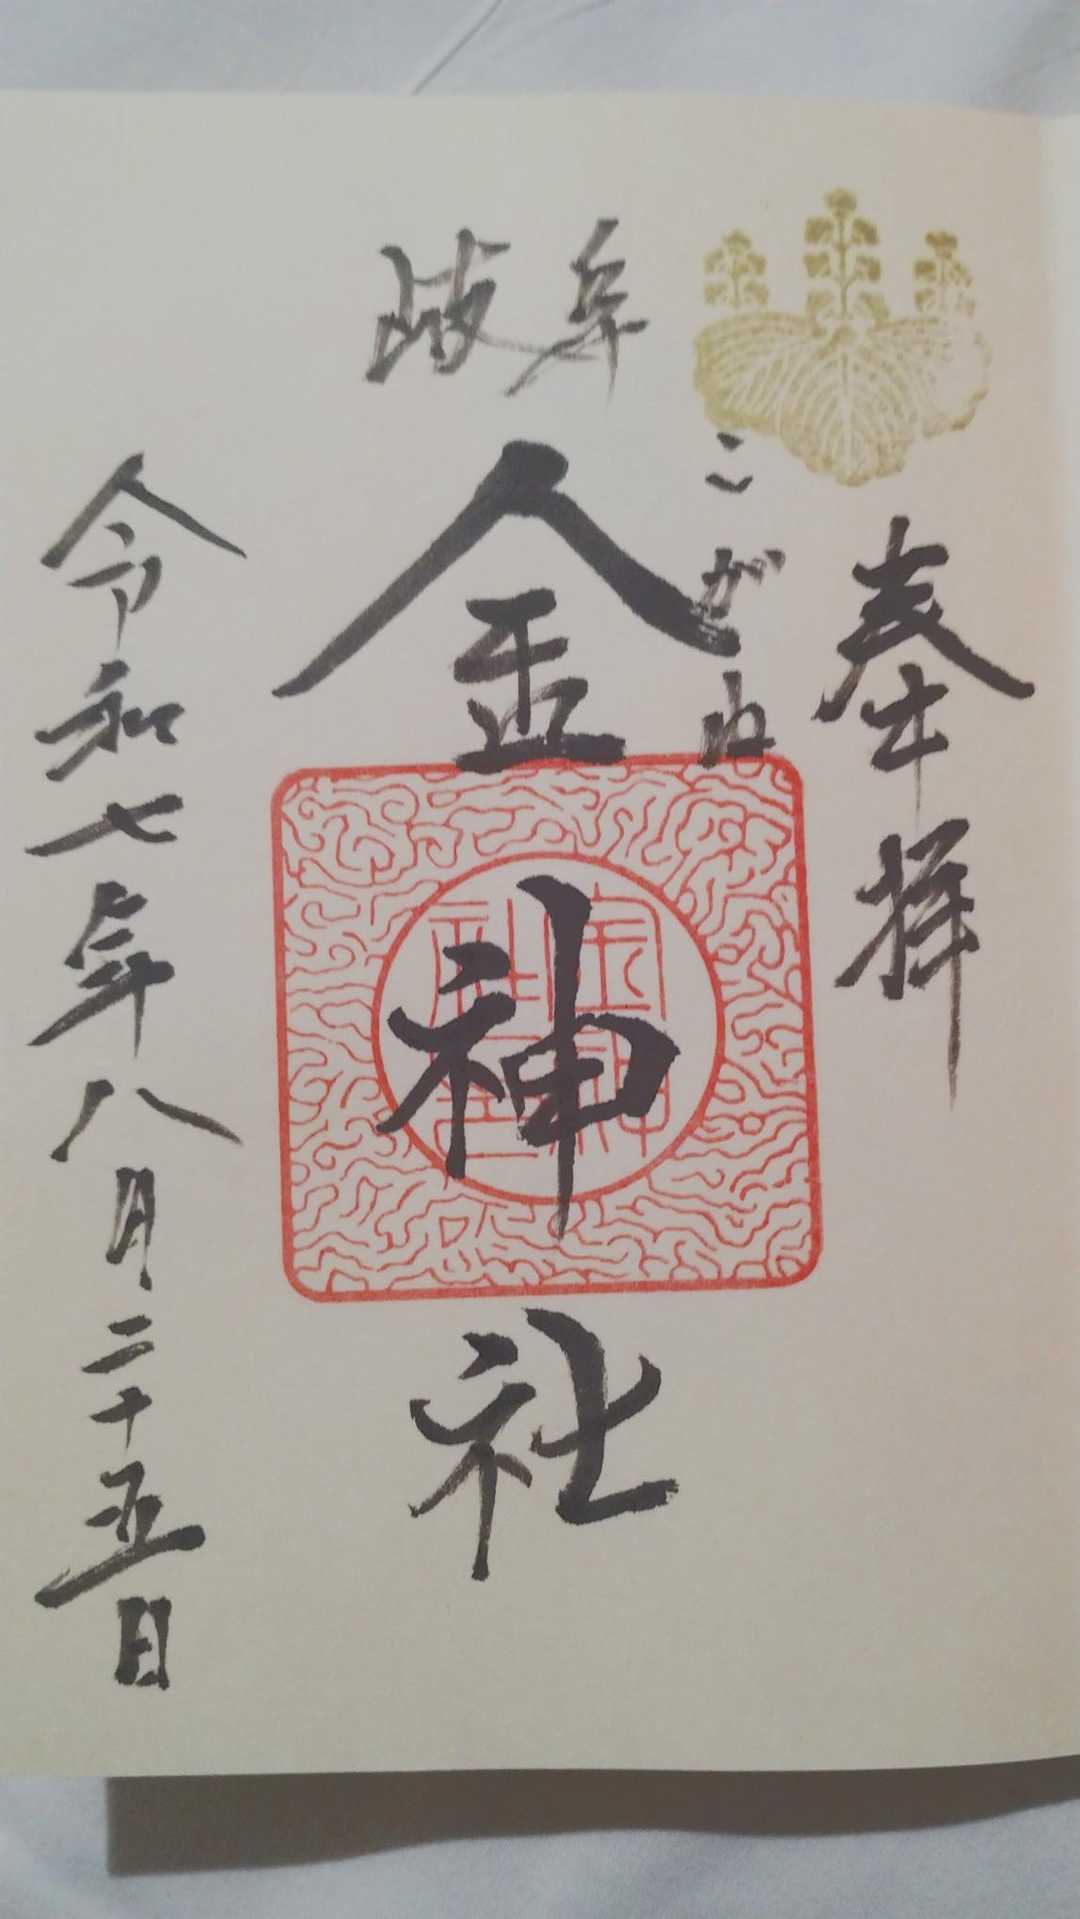 奉拝
岐阜
こがね
金神社
令和七年八月二十五日